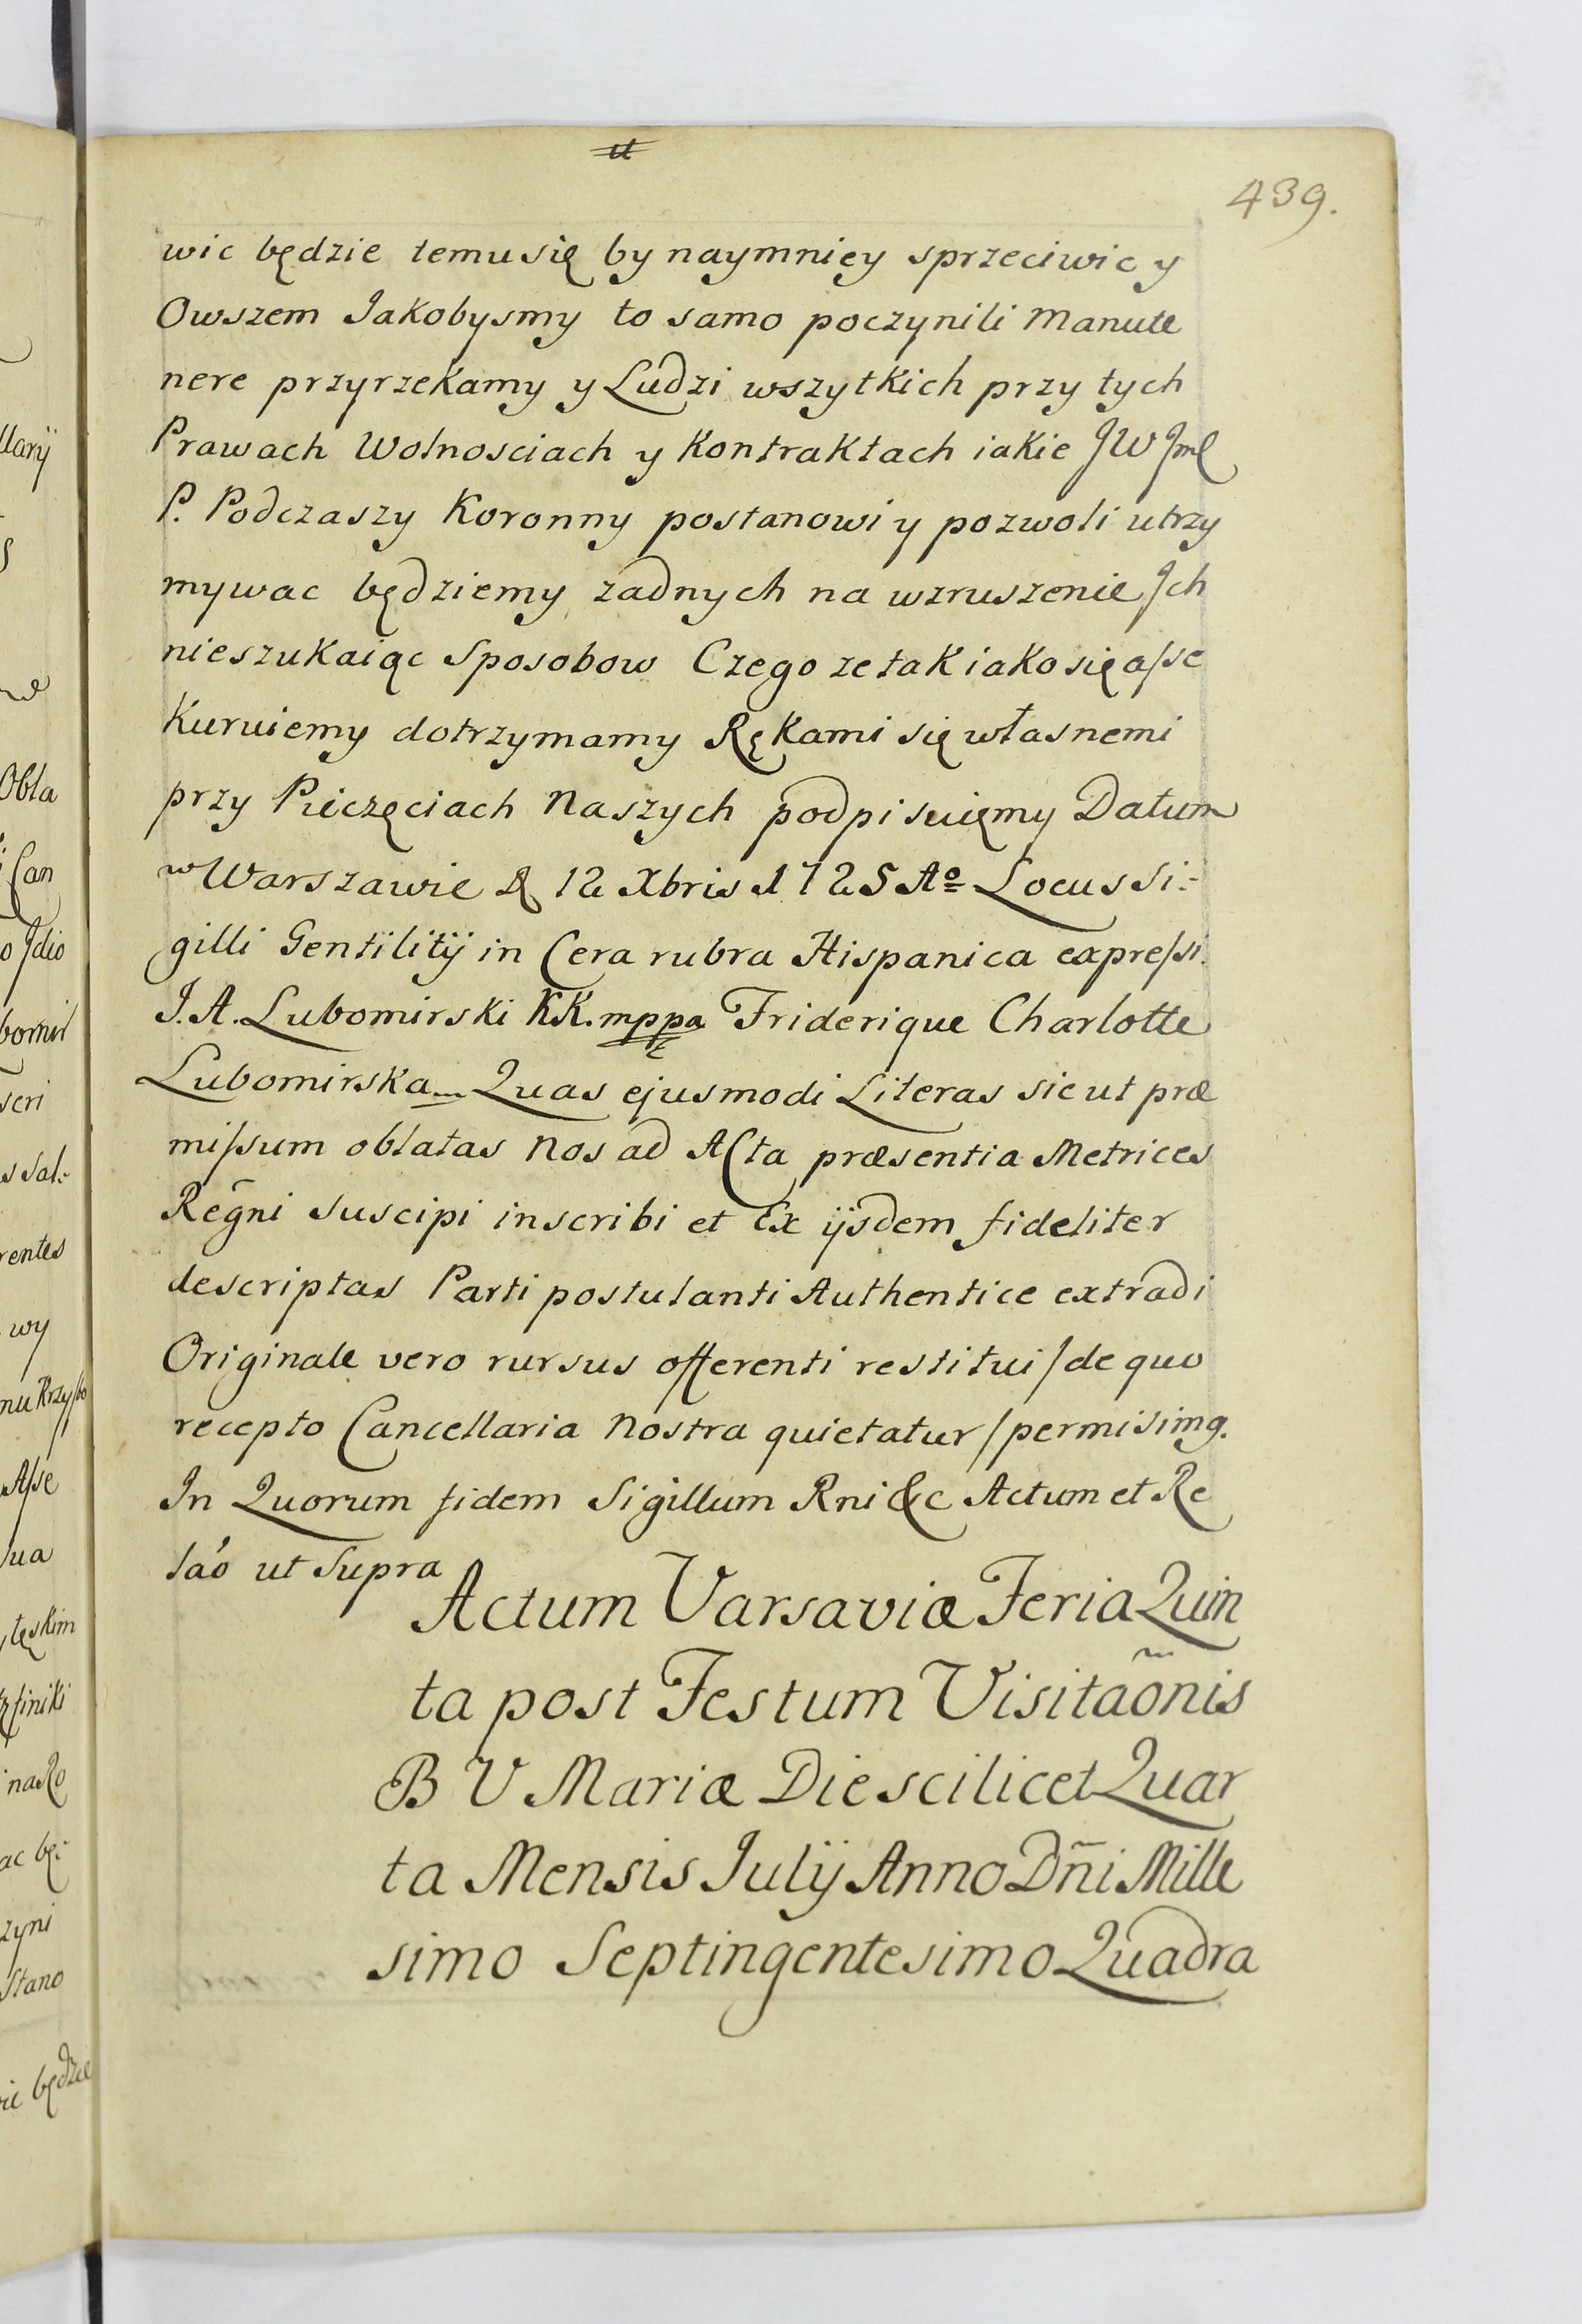 439.
wic będzie temu się by naymniey sprzeciwic y
Owszem Jakobysmy to samo poczynili Manute
nere przyrzekamy y Ludzi wszytkich przy tych
Prawach Wolnosciach y Kontraktach iakie JW Jml
P. Podczaszy Koronny postanowi y pozwoli utrzy
mywac będziemy zadnych na wzruszenie Jch
nieszukaiąc Sposobow Czego ze tak iako się asse
Kuruiemy dotrzymamy Rękami się własnemi
przy Pieczęciach Naszych podpisuięmy Datum
w Warszawie D 12 Xbris 1725 Ao Locus Si:
gilli Gentilitij in Cera rubra Hispanica expressi.
J. A. Lubomirski KK. mppa Friderique Charlotte
Lubomirska Quas ejusmodi Literas sicut præ
missum oblatas Nos ad Acta præsentia Metrices
Regñi suscipi inscribi et Ex ijsdem fideliter
descriptas Parti postulanti Authentice extradi
Originale vero rursus offerenti restitui / de quo
recepto Cancellaria Nostra quietatur / permisimg.
In Quorum fidem Sigillum Rni &c Actum et Re
lao ut Supra
Actum Varsaviæ Feria Quin
ta post Festum Visitaõnis
B V Mariæ Die scilicet Quar
ta Mensis Julij Anno Dñi Mille
simo Septingentesimo Quadra